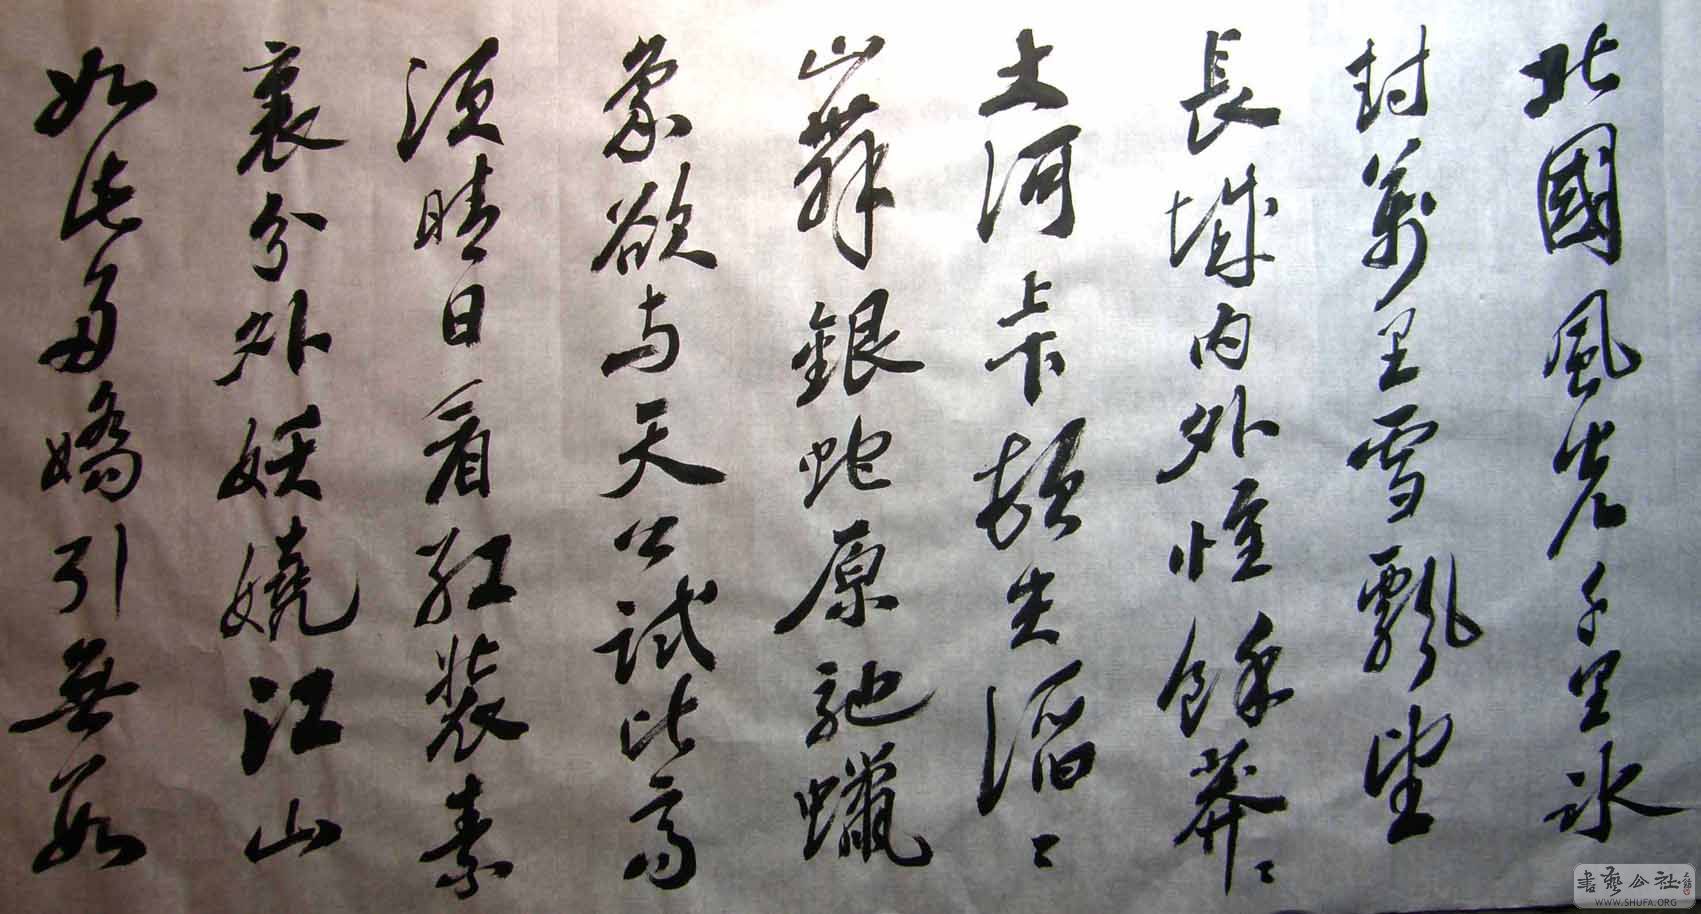 北國風光千里冰
封萬里雪飄望
長城内外惟餘莽〻
大河上下頓失滔〻
山舞銀蛇原馳蠟
象欲与天公試比高
須晴日看紅裝素
裹分外妖嬈江山
如此多嬌引無數
書藝公社
WWW.SHUFA.ORG